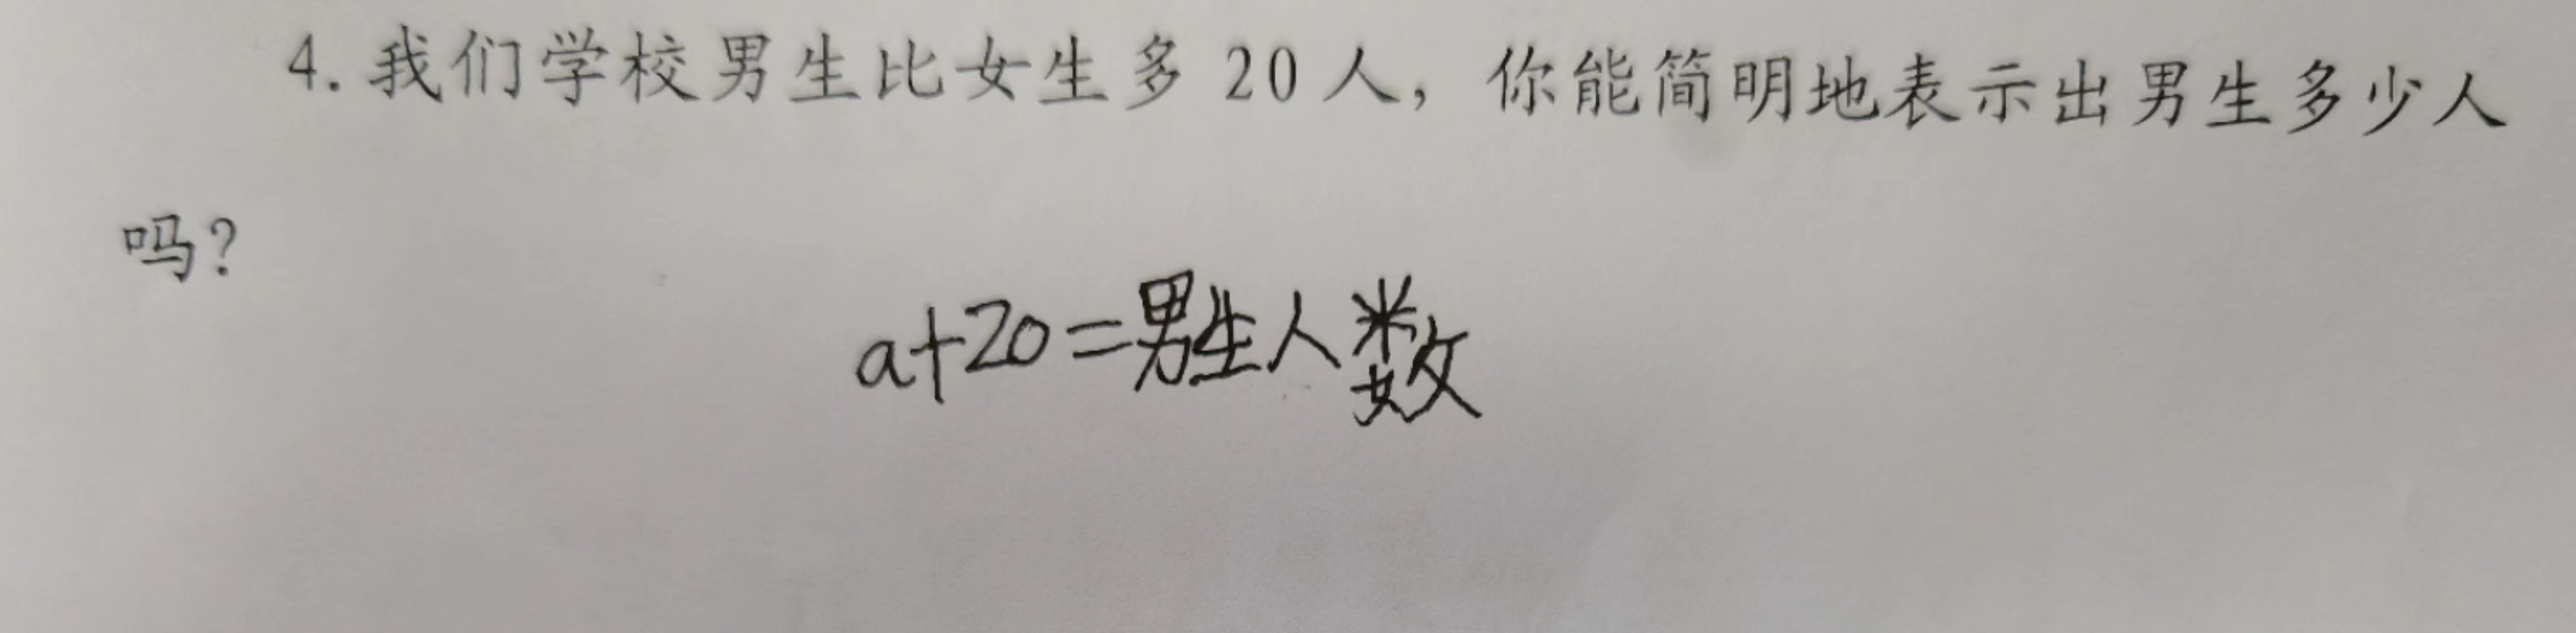 4. 我们学校男生比女生多 20 人，你能简明地表示出男生多少人
吗？
a+20=男生人数